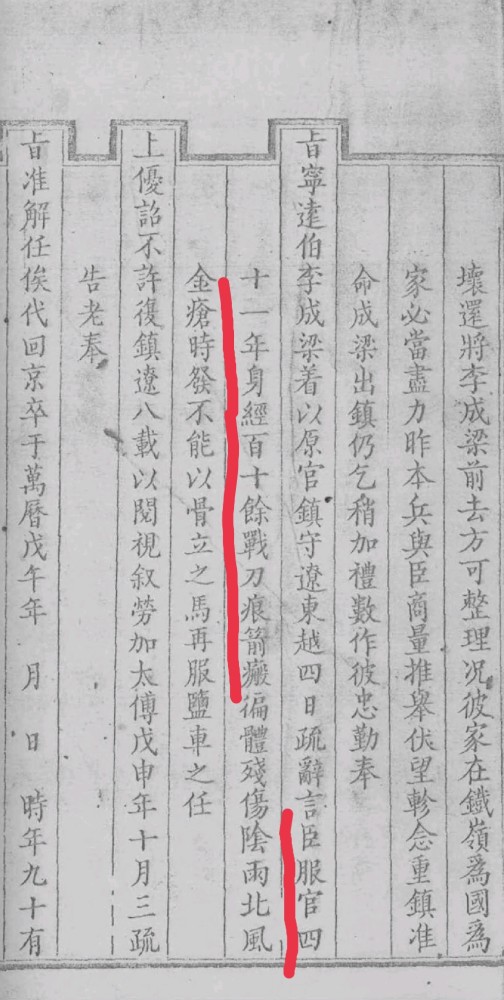 壞還將李成梁前去方可整理况彼家在鐵嶺爲國爲
家必當盡力昨本兵與臣商量推舉伏望軫念重鎮准
命成梁出鎮仍乞稍加禮數作彼忠勤奉
旨寧遠伯李成梁着以原官鎮守遼東越四日疏辭言臣服官四
十一年身經百十餘戰刀痕箭瘢徧體殘傷陰雨北風
金瘡時發不能以骨立之馬再服鹽車之任
上優詔不許復鎮遼八載以閱視叙勞加太傅戊申年十月三疏
告老奉
旨准解任俟代回京卒于萬曆戊午年 月 日 時年九十有